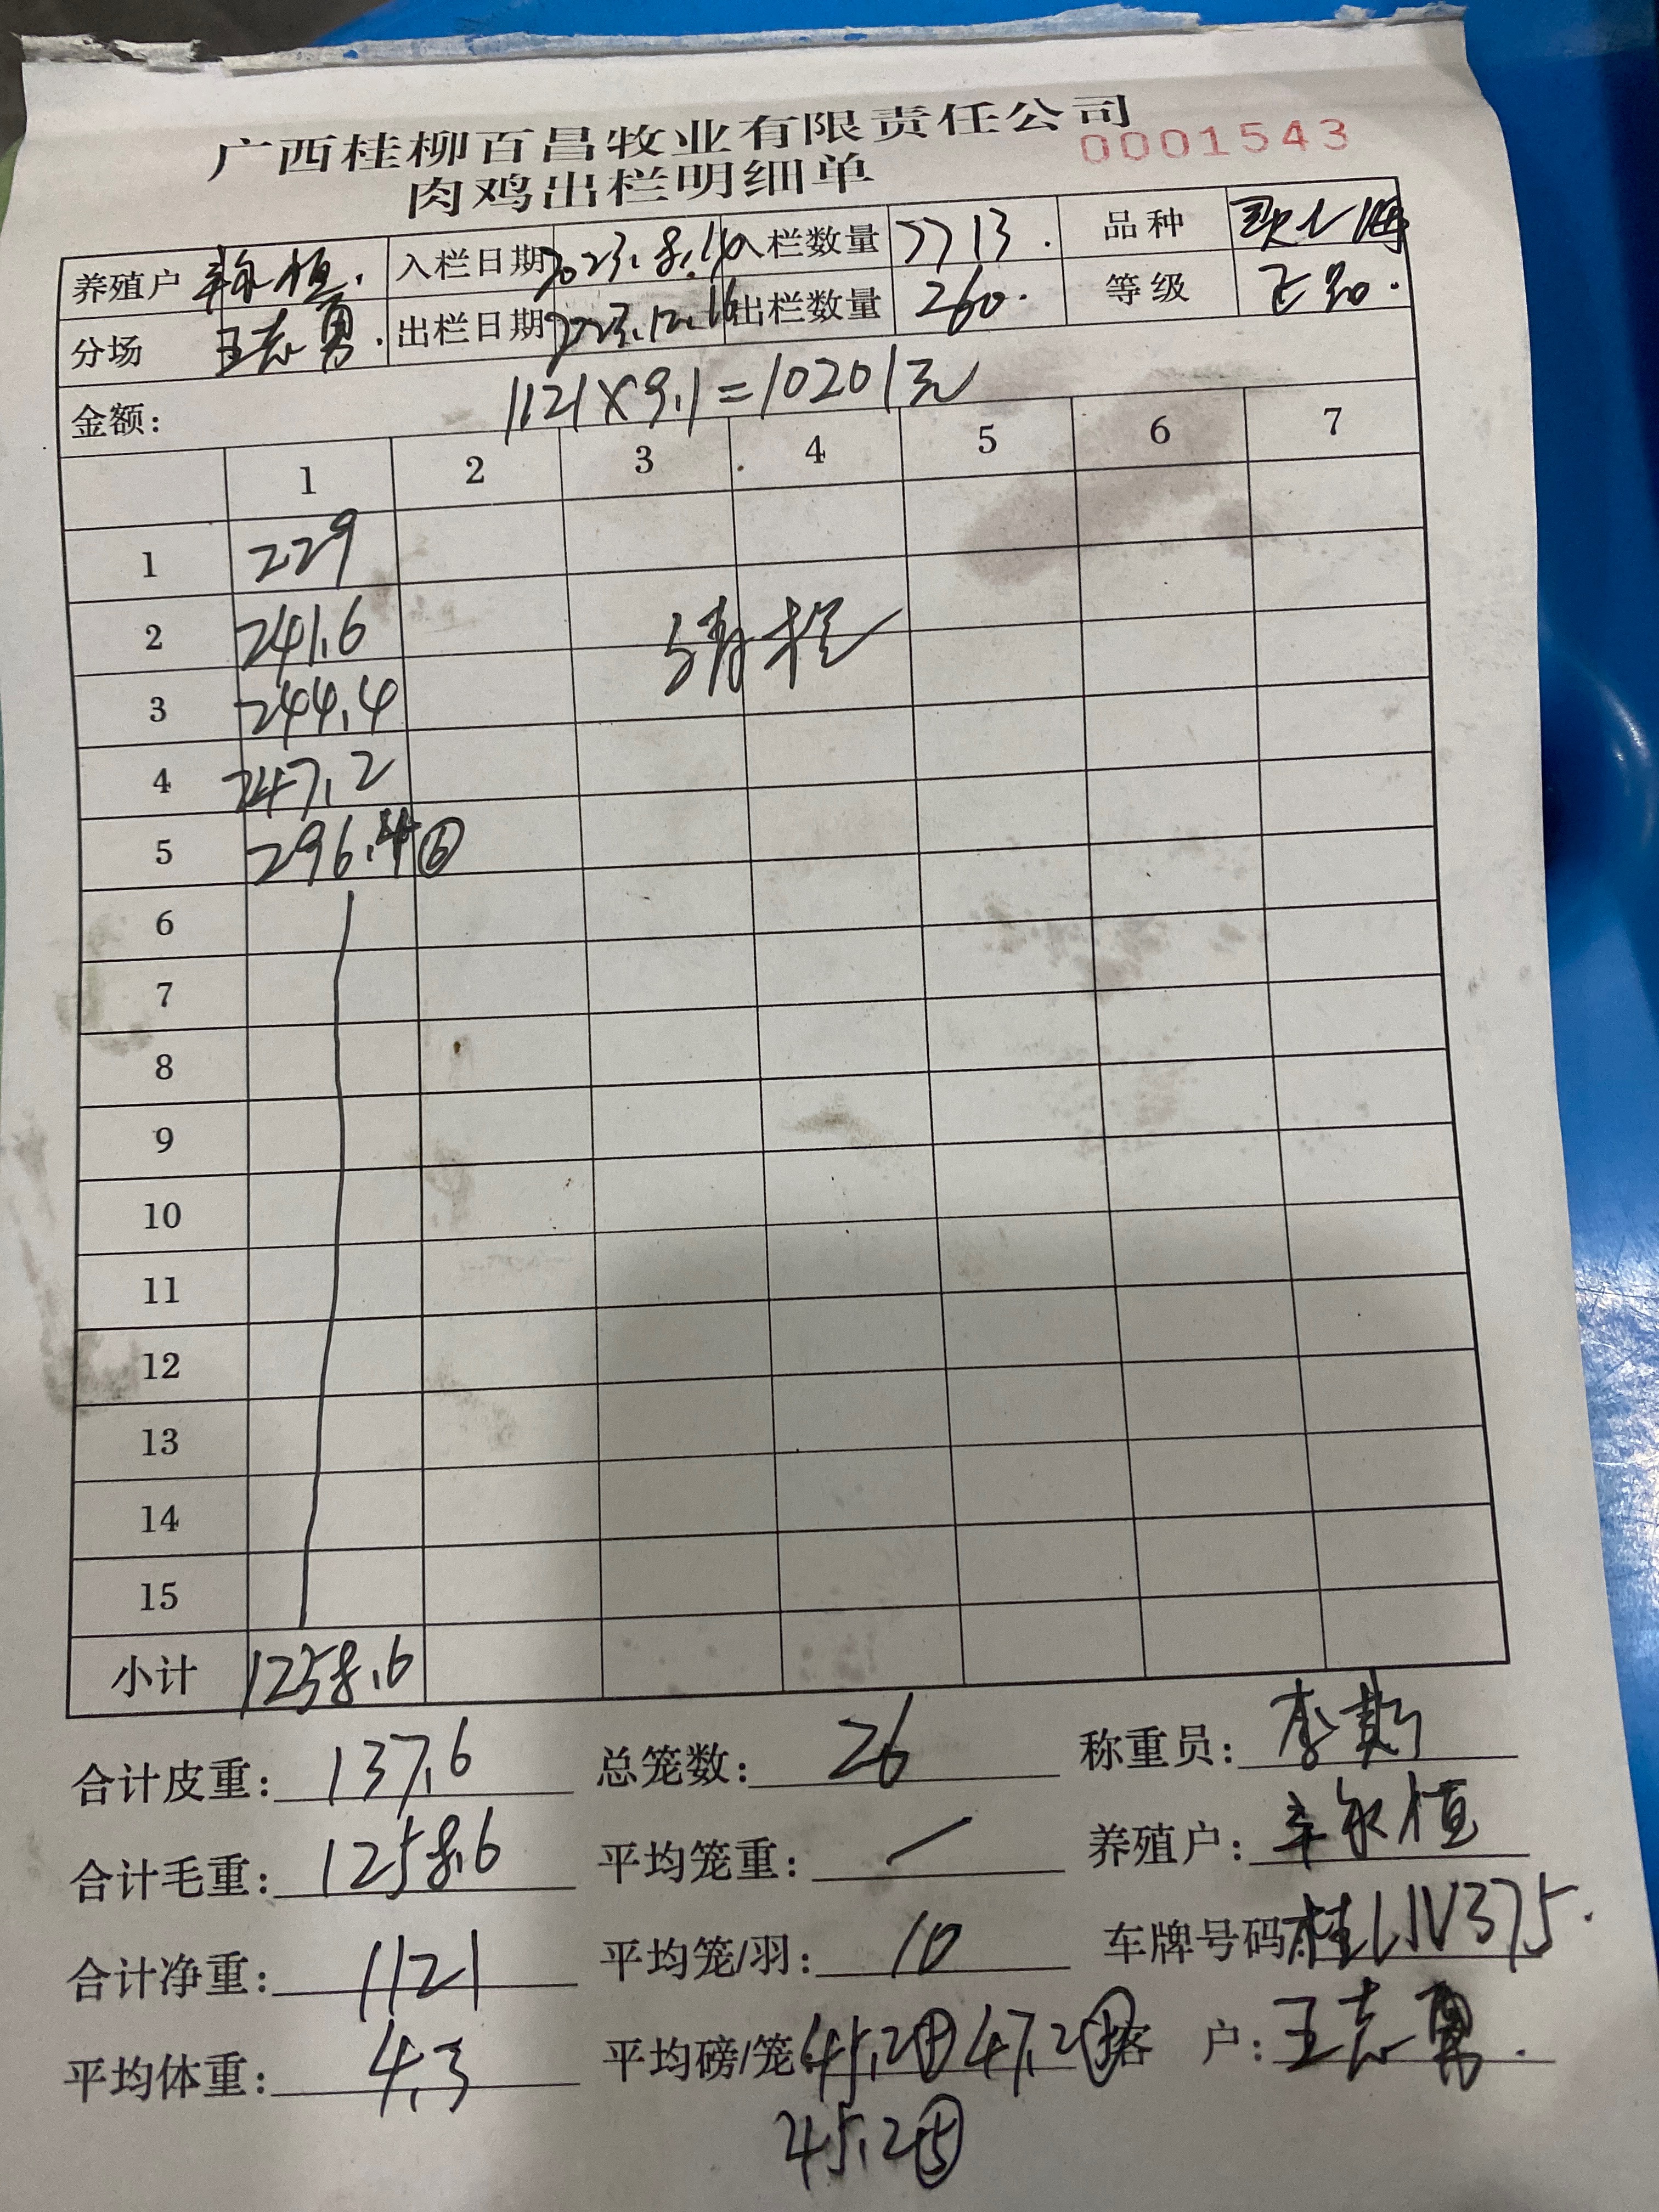 广西桂柳百昌牧业有限责任公司
0001543
肉鸡出栏明细单
养殖户 入栏日期 2023.8.10 入栏数量 7713. 品种
分场 王志勇. 出栏日期 2023.12.16 出栏数量 260. 等级 正品.
金额: 1121×9.1=10201元
1 2 3 4 5 6 7
1 229
2 241.6 清栏
3 244.4
4 247.2
5 296.4 ⑥
6
7
8
9
10
11
12
13
14
15
小计 1258.6
合计皮重: 137.6 总笼数: 26 称重员: 李
合计毛重: 1258.6 平均笼重: / 养殖户: 辛永恒
合计净重: 1121 平均笼/羽: 10 车牌号码: 桂
平均体重: 4.3 平均磅/笼 45.2 47.2 客户: 王志勇.
45.2⑤